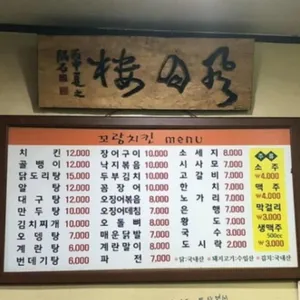 樓
꼬림치킨 menu
치킨 12,000 장어구이 10,000 소세지 8,000
골뱅이 12,000 낙지볶음 10,000 시사모 7,000
닭도리탕 15,000 두부김치 10,000 고갈비 7,000
알탕 12,000 꼼장어 10,000 한치 7,000
대구탕 12,000 오징어볶음 8,000 노가리 7,000
만두탕 10,000 오징어데침 7,000 은행 7,000
김치찌개 10,000 오돌뼈 8,000 황도 7,000
오뎅탕 7,000 매운닭발 7,000 국수 3,000
계란탕 6,000 계란말이 8,000 도시락 2,000
번데기탕 6,000 파전 7,000
*닭:국내산 *돼지고기:수입산 *김치:국내산
소주
₩4,000
맥주
₩4,000
막걸리
₩3,000
생맥주
500cc
₩3,000